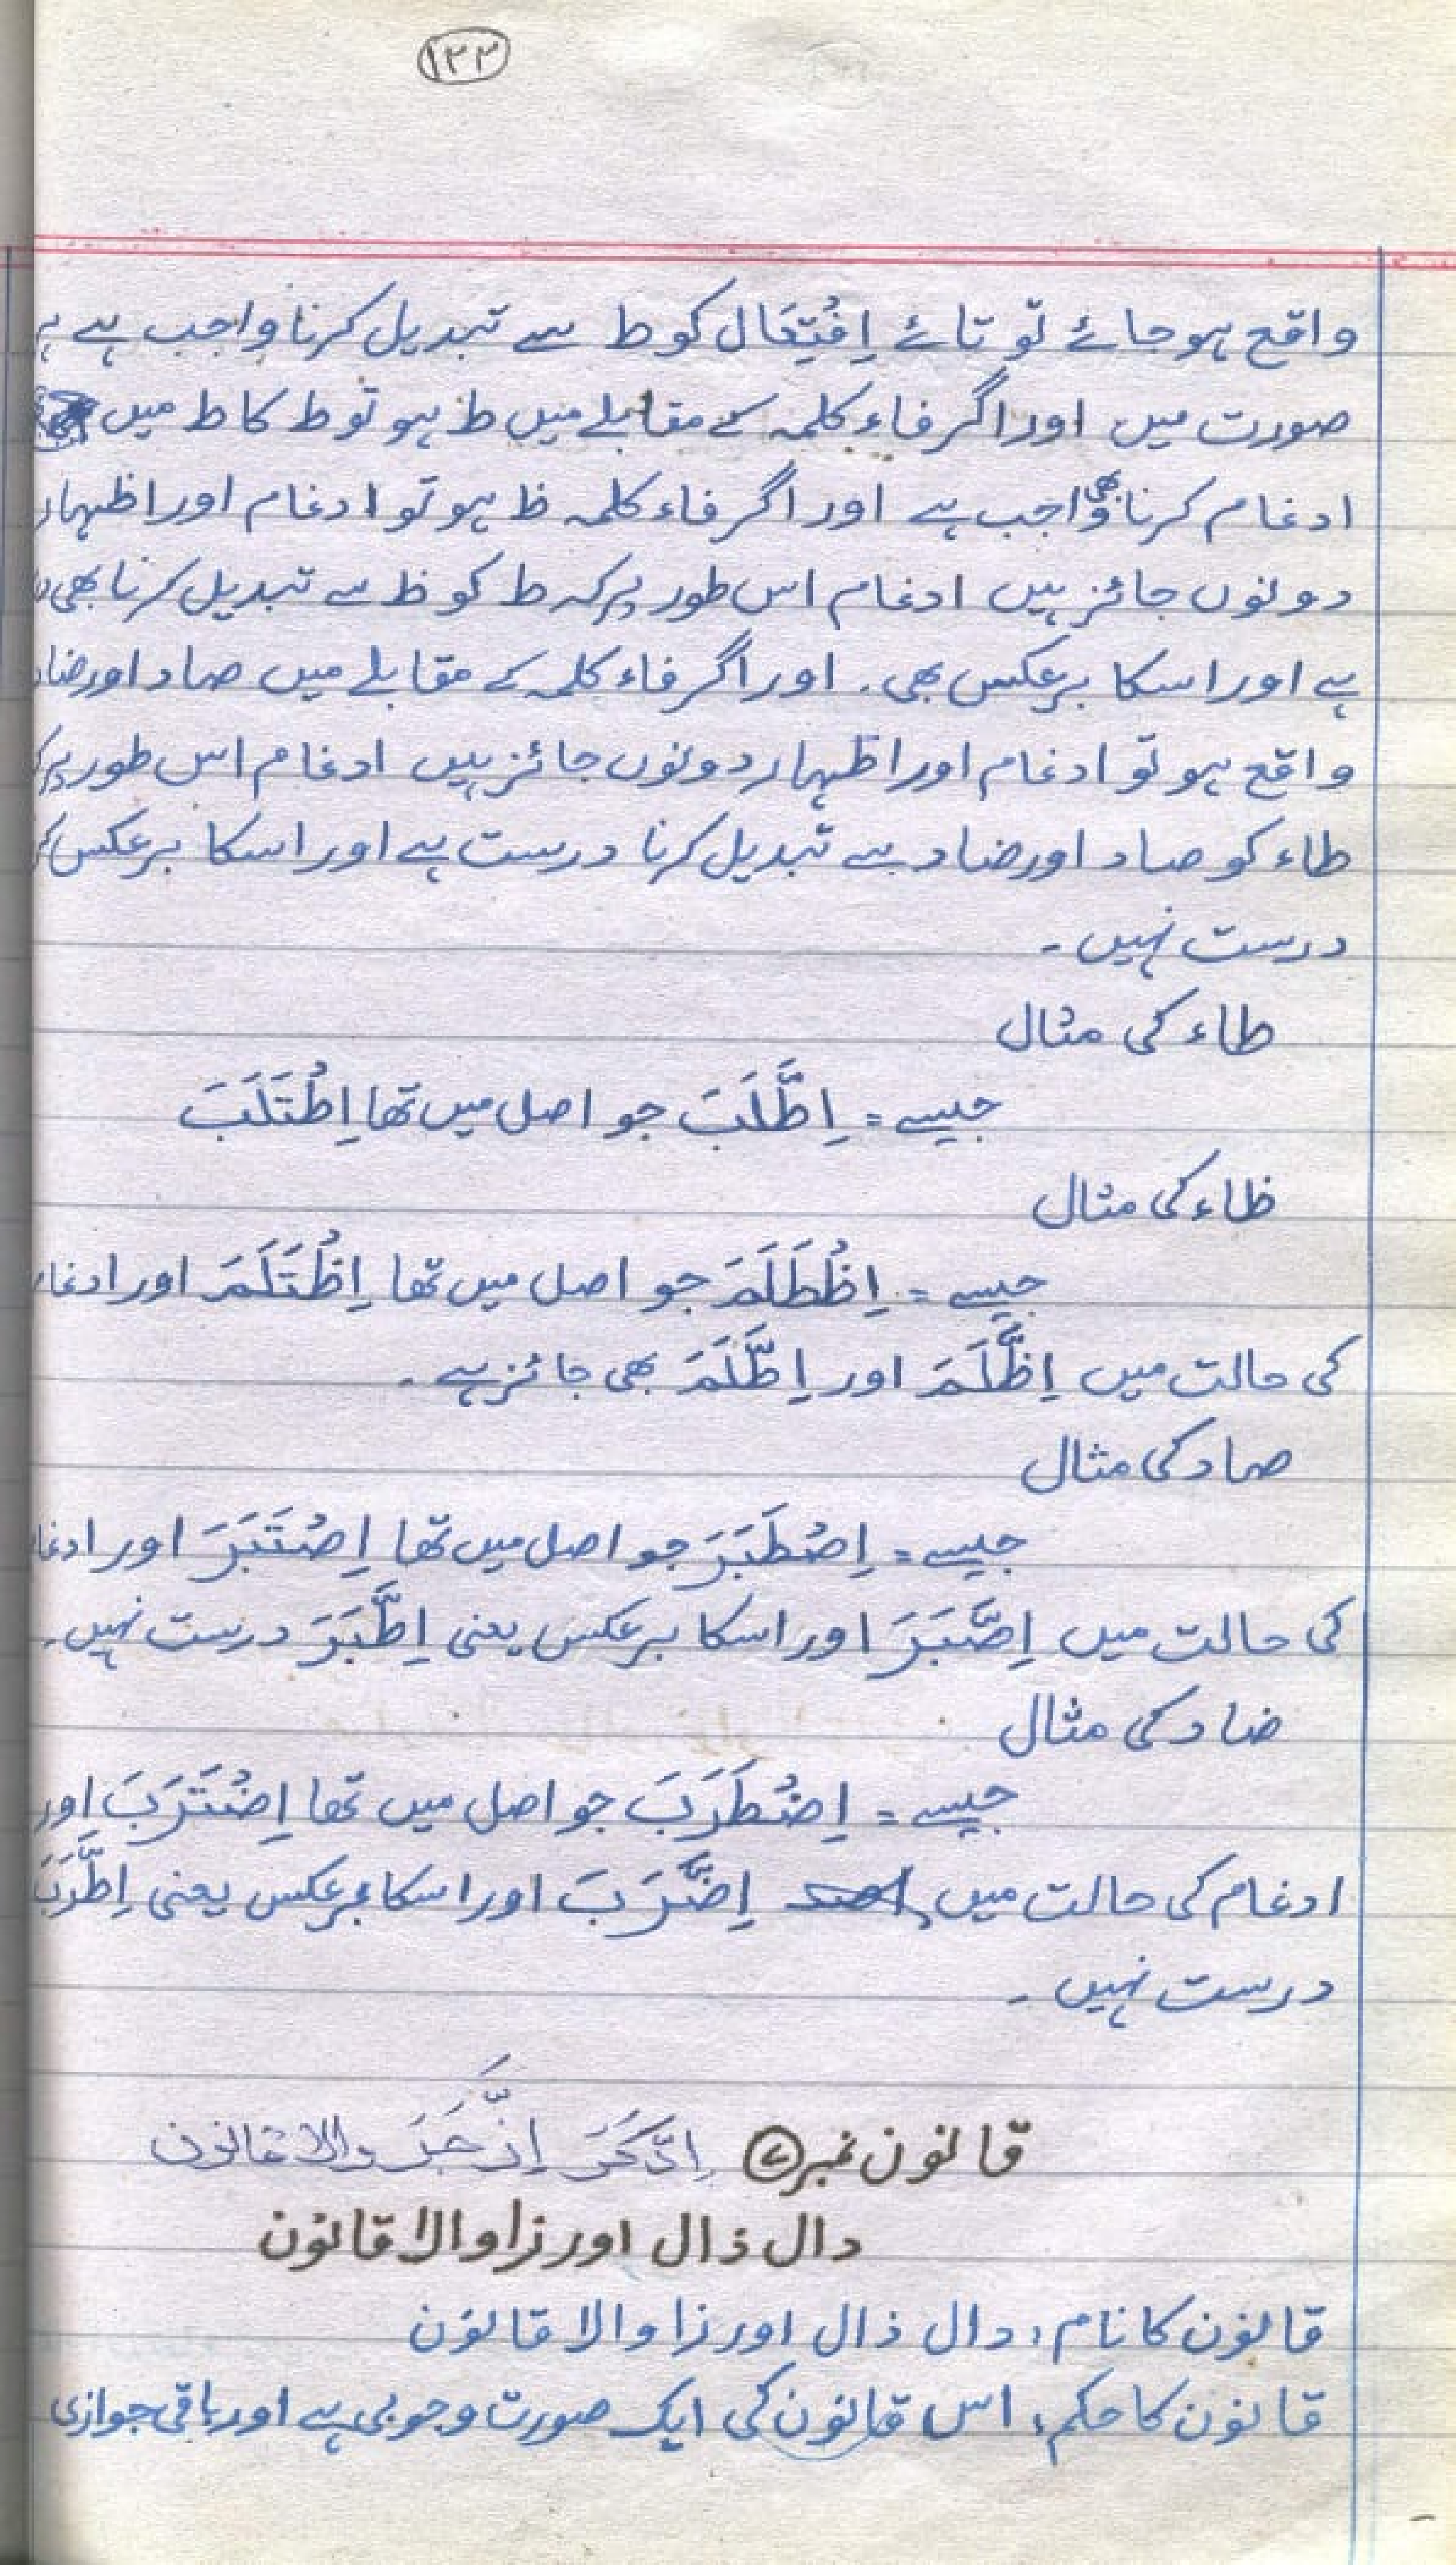 ۱۲۲
واقع ہوجائے تو تائے اِفْتِعَال کو ط سے تبدیل کرنا واجب ہے
صورت میں اور اگر فاء کلمہ کے مقابلے میں ط ہو تو ط کا ط میں
ادغام کرنا بھی واجب ہے اور اگر فاء کلمہ ظ ہو تو ادغام اور اظہار
دونوں جائز ہیں ادغام اس طور پر کہ ط کو ظ سے تبدیل کرنا بھی
ہے اور اسکا برعکس بھی۔ اور اگر فاء کلمہ کے مقابلے میں صاد اور ضاد
واقع ہو تو ادغام اور اظہار دونوں جائز ہیں ادغام اس طور پر
طاء کو صاد اور ضاد سے تبدیل کرنا درست ہے اور اسکا برعکس
درست نہیں۔
طاء کی مثال
جیسے = اِطَّلَبَ جو اصل میں تھا اِطْتَلَبَ
ظاء کی مثال
جیسے = اِظْطَلَمَ جو اصل میں تھا اِظْتَلَمَ اور ادغا
کی حالت میں اِظَّلَمَ اور اِطَّلَمَ بھی جائز ہے۔
صاد کی مثال
جیسے = اِصْطَبَرَ جو اصل میں تھا اِصْتَبَرَ اور ادغا
کی حالت میں اِصَّبَرَ اور اسکا برعکس یعنی اِطَّبَرَ درست نہیں۔
ضاد کی مثال
جیسے = اِضْطَرَبَ جو اصل میں تھا اِضْتَرَبَ اور
ادغام کی حالت میں اِضَّرَبَ اور اسکا برعکس یعنی اِطَّرَبَ
درست نہیں۔
قانون نمبر ۷ اِدَّكَرَ اِزَّجَرَ والا قانون
دال ذال اور زا والا قانون
قانون کا نام: دال ذال اور زا والا قانون
قانون کا حکم: اس قانون کی ایک صورت وجوبی ہے اور باقی جوازی